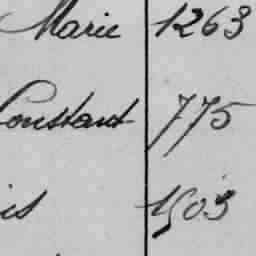 Marie 1263
Constant 775
is 1503